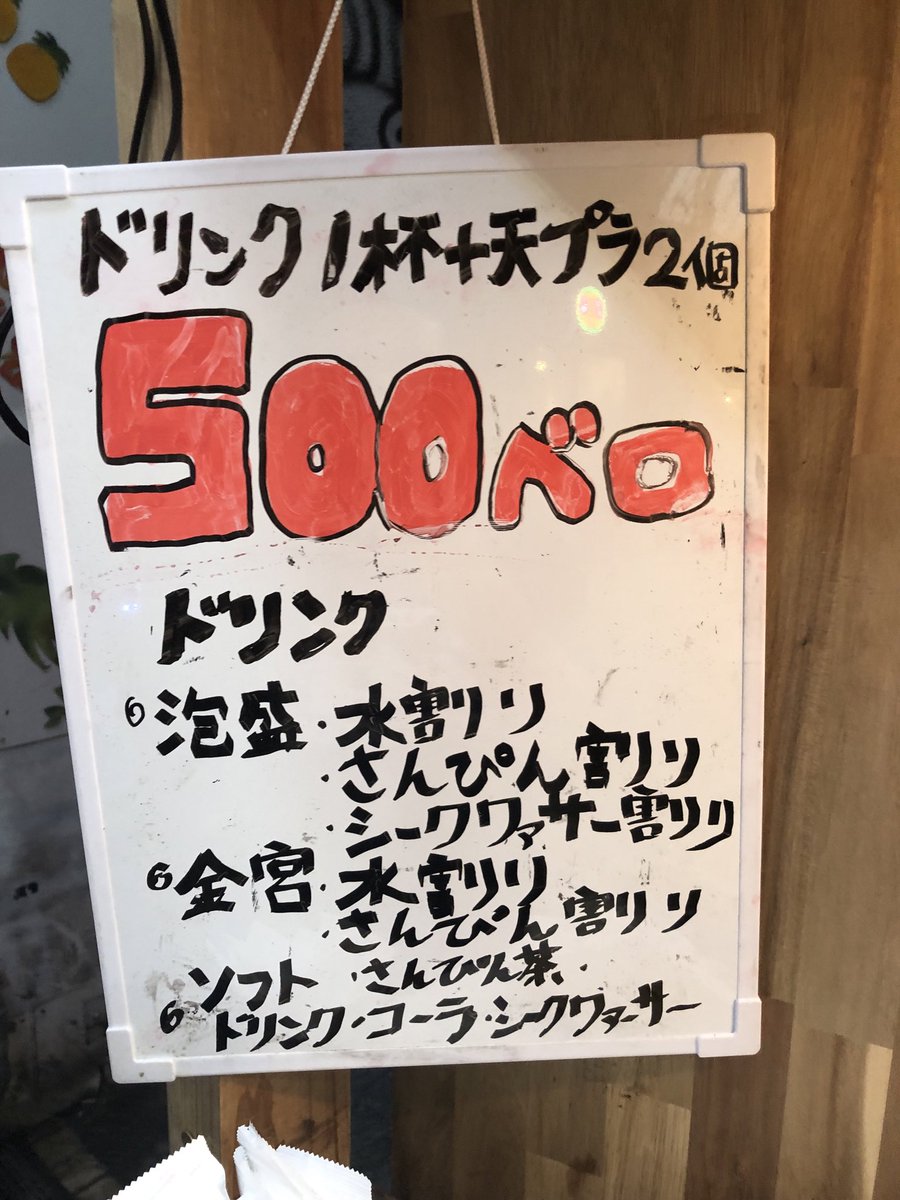 ドリンク1杯+天プラ2個
500ベロ
ドリンク
泡盛・水割り
・さんぴん割り
・シークワァサー割り
金宮・水割り
・さんぴん割り
ソフト・さんぴん茶・
ドリンク・コーラ・シークヮーサー